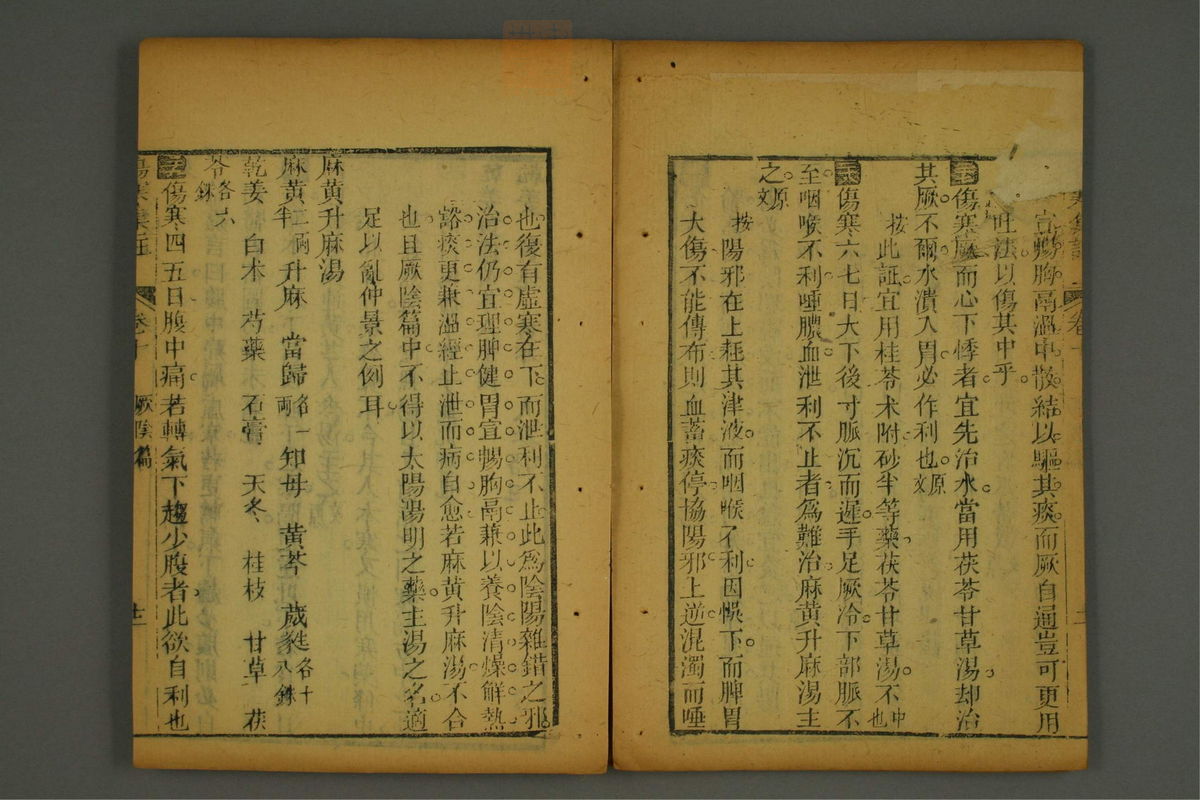 宜暢胸鬲溫中散結以驅其痰而厥自通豈可更用
吐法以傷其中乎
傷寒厥而心下悸者宜先治水當用茯苓甘草湯却治
其厥不爾水漬入胃必作利也原文
按此証宜用桂苓术附砂半等藥茯苓甘草湯不中也
傷寒六七日大下後寸脈沉而遲手足厥冷下部脈不
至咽喉不利唾膿血泄利不止者爲難治麻黃升麻湯主
之原文
按陽邪在上耗其津液而咽喉不利因悞下而脾胃
大傷不能傳布則血蓄痰停協陽邪上逆混濁而唾
也復有虛寒在下而泄利不止此爲陰陽雜錯之邪
治法仍宜理脾健胃宣暢胸鬲兼以養陰清燥解熱
豁痰更兼溫經止泄而病自愈若麻黃升麻湯不合
也且厥陰篇中不得以太陽湯明之藥主湯之名適
足以亂仲景之例耳
麻黃升麻湯
麻黃二兩半 升麻 當歸各一兩 知母 黃芩 葳蕤各十八銖
乾姜 白术 芍藥 石膏 天冬 桂枝 甘草 茯
苓各六銖
傷寒四五日腹中痛若轉氣下趨少腹者此欲自利也
卷十 厥陰篇